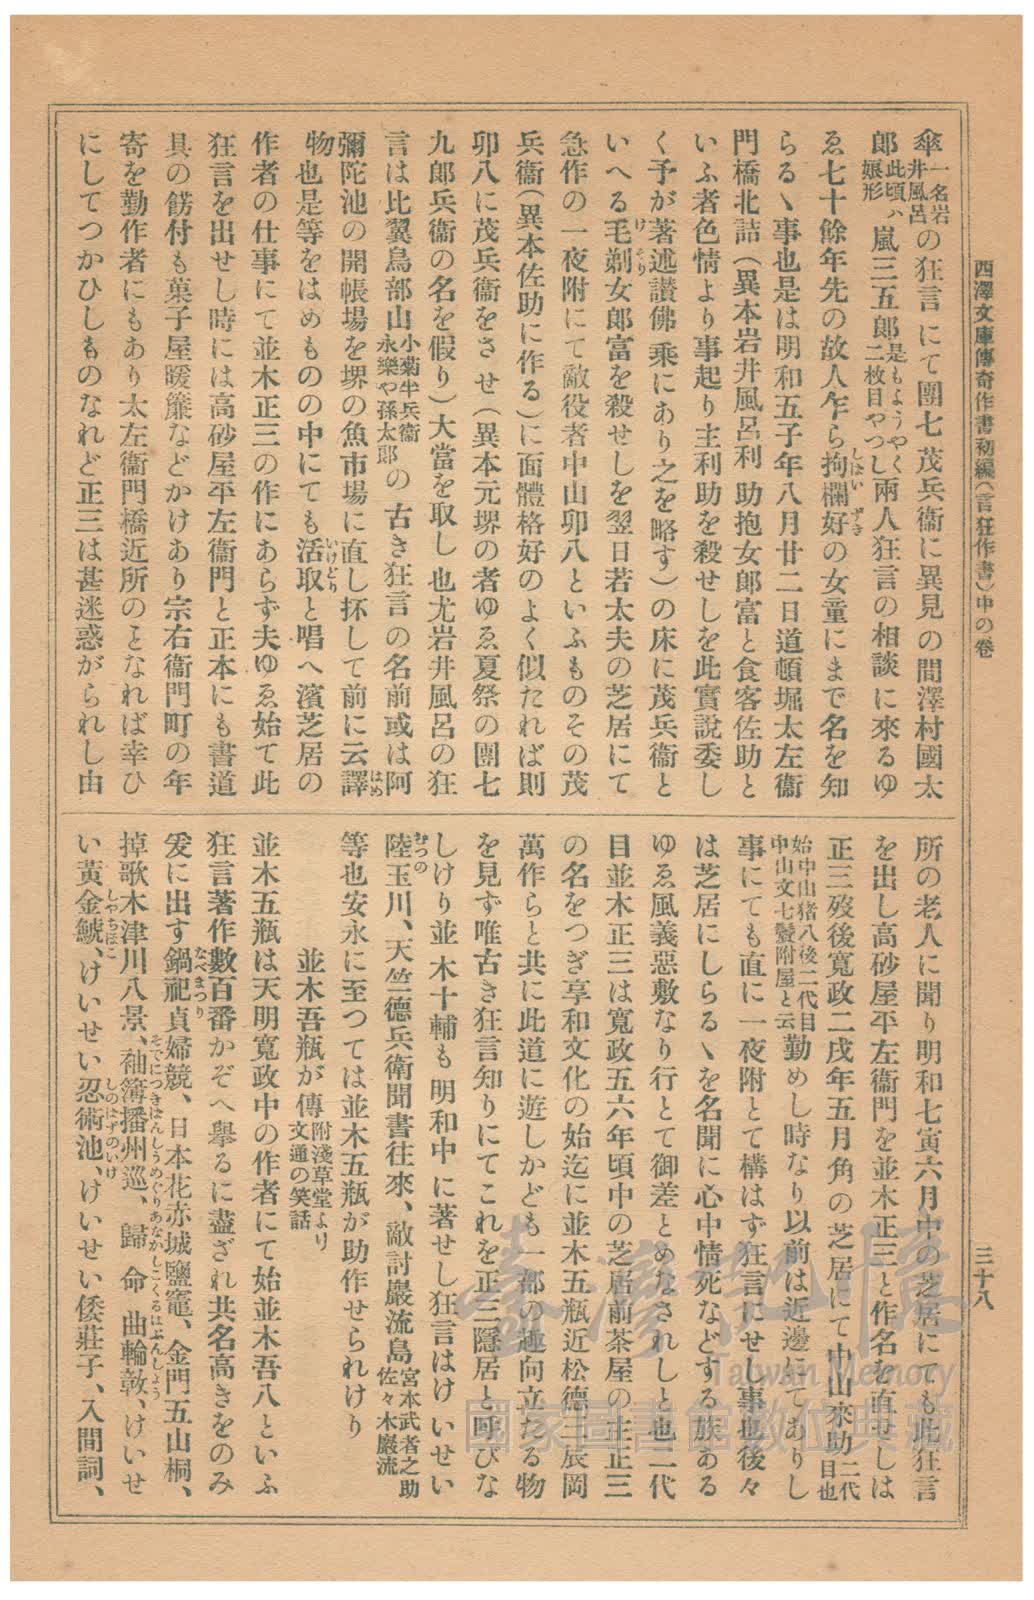 西澤文庫傳奇作書初編(言狂作書)中の卷
三十八
傘一名岩井風呂の狂言にて團七茂兵衞に異見の間澤村國太
郎此頃ハ娘形嵐三五郎是もようやく二枚目やつし兩人狂言の相談に來るゆ
ゑ七十餘年先の故人乍ら拘欄好の女童にまで名を知
らるゝ事也是は明和五子年八月廿二日道頓堀太左衞
門橋北詰(異本岩井風呂利助抱女郎富と食客佐助と
いふ者色情より事起り主利助を殺せしを此實說委し
く予が著述讃佛乘にあり之を略す)の床に茂兵衞と
いへる毛剃女郎富を殺せしを翌日若太夫の芝居にて
急作の一夜附にて敵役者中山卯八といふものその茂
兵衞(異本佐助に作る)に面體格好のよく似たれば則
卯八に茂兵衞をさせ(異本元堺の者ゆゑ夏祭の團七
九郎兵衞の名を假り)大當を取し也尤岩井風呂の狂
言は比翼鳥部山小菊半兵衞永樂や孫太郎の古き狂言の名前或は阿
彌陀池の開帳場を堺の魚市場に直し抔して前に云譯
物也是等をはめものの中にても活取と唱へ濱芝居の
作者の仕事にて並木正三の作にあらず夫ゆゑ始て此
狂言を出せし時には高砂屋平左衞門と正本にも書道
具の餝付も菓子屋暖簾などかけあり宗右衞門町の年
寄を勤作者にもあり太左衞門橋近所のとなれば幸ひ
にしてつかひしものなれど正三は甚迷惑がられし由
所の老人に聞り明和七寅六月中の芝居にても此狂言
を出し高砂屋平左衞門を並木正三と作名を直せしは
正三歿後寛政二戌年五月角の芝居にて中山來助二代目也
始中山猪八後二代目中山文七鬢附屋と云勤めし時なり以前は近邊にてありし
事にても直に一夜附とて構はず狂言にせし事也後々
は芝居にしらるゝを名聞に心中情死などする族ある
ゆゑ風義惡敷なり行とて御差とめなされしと也二代
目並木正三は寛政五六年頃中の芝居前茶屋の主正三
の名をつぎ享和文化の始迄に並木五瓶近松德三辰岡
萬作らと共に此道に遊しかども一部の趣向立たる物
を見ず唯古き狂言知りにてこれを正三隱居と呼びな
しけり並木十輔も明和中に著せし狂言はけいせい
陸玉川、天竺德兵衛聞書往來、敵討巖流島宮本武者之助佐々木巖流
等也安永に至つては並木五瓶が助作せられけり
並木吾瓶が傳附淺草堂より文通の笑話
並木五瓶は天明寛政中の作者にて始並木吾八といふ
狂言著作數百番かぞへ擧るに盡ざれ共名高きをのみ
爰に出す鍋祀貞婦競、日本花赤城鹽竈、金門五山桐、
掉歌木津川八景、袖簿播州巡、歸命曲輪敦、けいせ
い黃金鯱、けいせい忍術池、けいせい倭莊子、入間詞、
臺灣記憶
Taiwan Memory
國家圖書館數位典藏